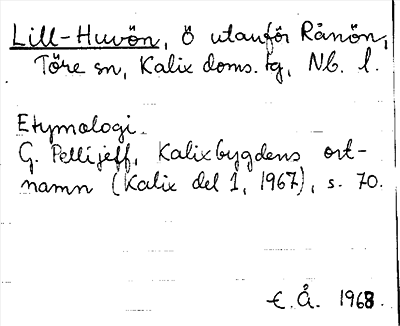 Lill-Huvön, ö utanför Rånön,
Töre sn, Kalix doms. tg, Nb. l.
Etymologi.
G. Pellijeff, Kalixbygdens ort-
namn (Kalix del 1, 1967), s. 70.
E. Å. 1968.